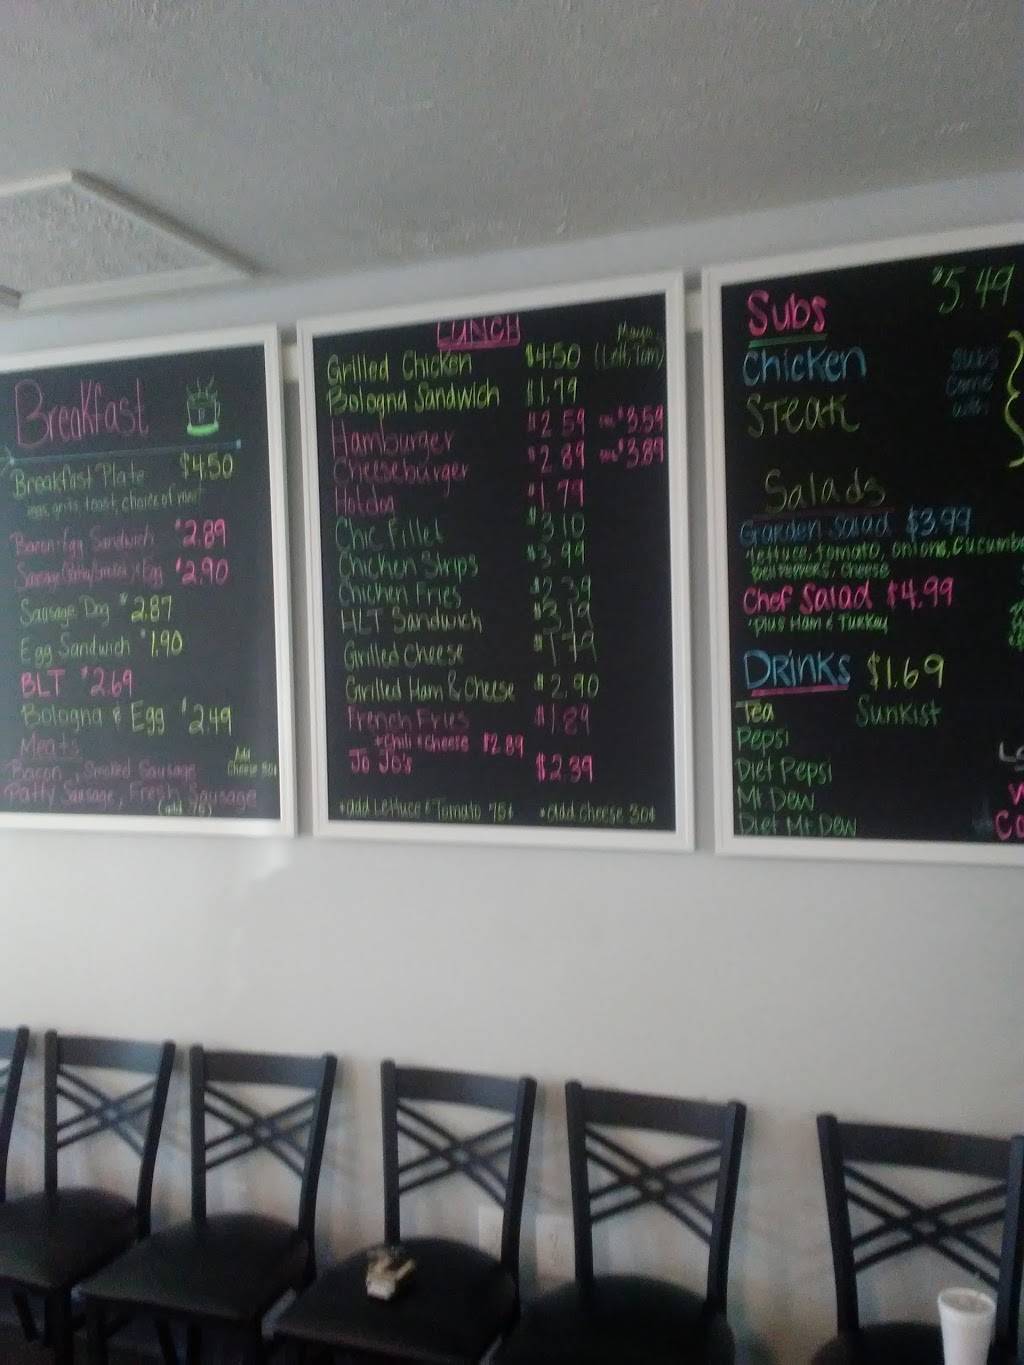 Breakfast
Breakfast Plate $4.50
eggs, grits, toast, choice of meat
Bacon-Egg Sandwich $2.89
Sausage (Patty/Smoked) & Egg $2.90
Sausage Dog $2.87
Egg Sandwich $1.90
BLT $2.69
Bologna & Egg $2.49
Meats
Add
Cheese 30¢
Bacon, Smoked Sausage
Patty Sausage, Fresh Sausage
LUNCH
Mayo
Grilled Chicken $4.50 (Lett, Tom)
Bologna Sandwich $1.79
Hamburger $2.59 $3.59
Cheeseburger $2.89 $3.89
Hotdog $1.79
Chic Fillet $3.10
Chicken Strips $3.99
Chicken Fries $2.39
HLT Sandwich $3.19
Grilled Cheese $1.79
Grilled Ham & Cheese $2.90
French Fries $1.89
+Chili +Cheese $2.89
Jo Jo's $2.39
*add Lettuce & Tomato 75¢ *add cheese 30¢
Subs $5.49
Chicken
Steak
Subs
Come
with:
Salads
Garden Salad $3.99
lettuce, tomato, onions, cucumbe
Bell Peppers, cheese
Chef Salad $4.99
*Plus Ham & Turkey
Drinks $1.69
Tea Sunkist
Pepsi
Diet Pepsi
Mt Dew
Diet Mt Dew
Co